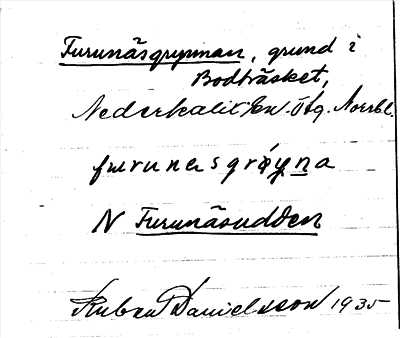 Furunäsgrynnan, grund i
Bodträsket,
Nederkalix sn. Öfg. Norrb. l.
furunesgrøyna
N Furunäsudden
Ruben Danielsson 1935